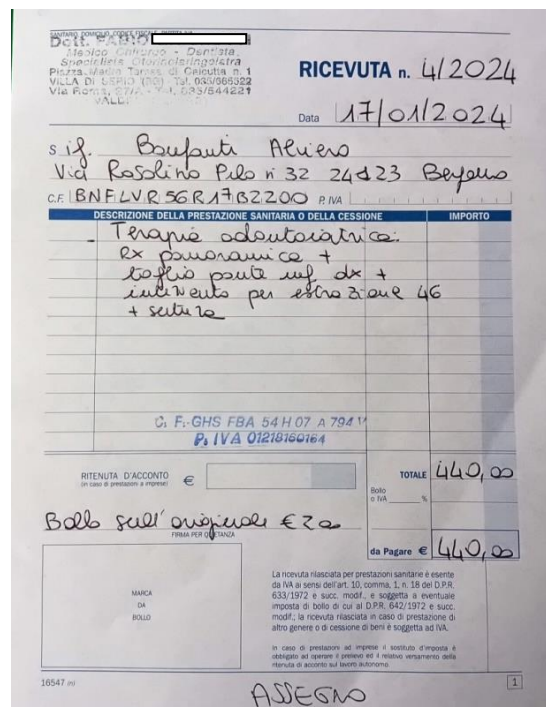 SANITARIO DOMICILIO, CODICE FISCALE, PARTITA IVA
Dott. FABIO
Medico Chirurgo - Dentista
Specialista Otorinolaringoiatra
Piazza Madre Teresa di Calcutta n. 1
VILLA DI SERIO (BG) - Tel. 035/665322
Via Roma, 27/A - Tel. 035/544221
RICEVUTA n. 4/2024
Data 17/01/2024
Sig. Bonfanti Alviero
Via Rosolino Pilo n 32 24123 Bergamo
C.F. BNFLVR56R17B2200 P. IVA
DESCRIZIONE DELLA PRESTAZIONE SANITARIA O DELLA CESSIONE IMPORTO
- Terapia odontoiatrica:
Rx panoramica +
taglio ponte inf dx +
intervento per estrazione 46
+ sutura
C. F. GHS FBA 54 H 07 A 794
P. IVA 01218160164
RITENUTA D'ACCONTO
(in caso di prestazioni a imprese)
€
TOTALE 440,00
Bollo
o IVA %
Bollo sull'originale € 2,00
FIRMA PER QUIETANZA
da Pagare € 440,00
MARCA
DA
BOLLO
La ricevuta rilasciata per prestazioni sanitarie è esente
da IVA ai sensi dell'art. 10, comma, 1, n. 18 del D.P.R.
633/1972 e succ. modif., e soggetta a eventuale
imposta di bollo di cui al D.P.R. 642/1972 e succ.
modif.; la ricevuta rilasciata in caso di prestazione di
altro genere o di cessione di beni è soggetta ad IVA.
In caso di prestazioni ad imprese il sostituto d'imposta è
obbligato ad operare il prelievo ed il relativo versamento della
ritenuta di acconto sul lavoro autonomo.
16547
1
ASSEGNO